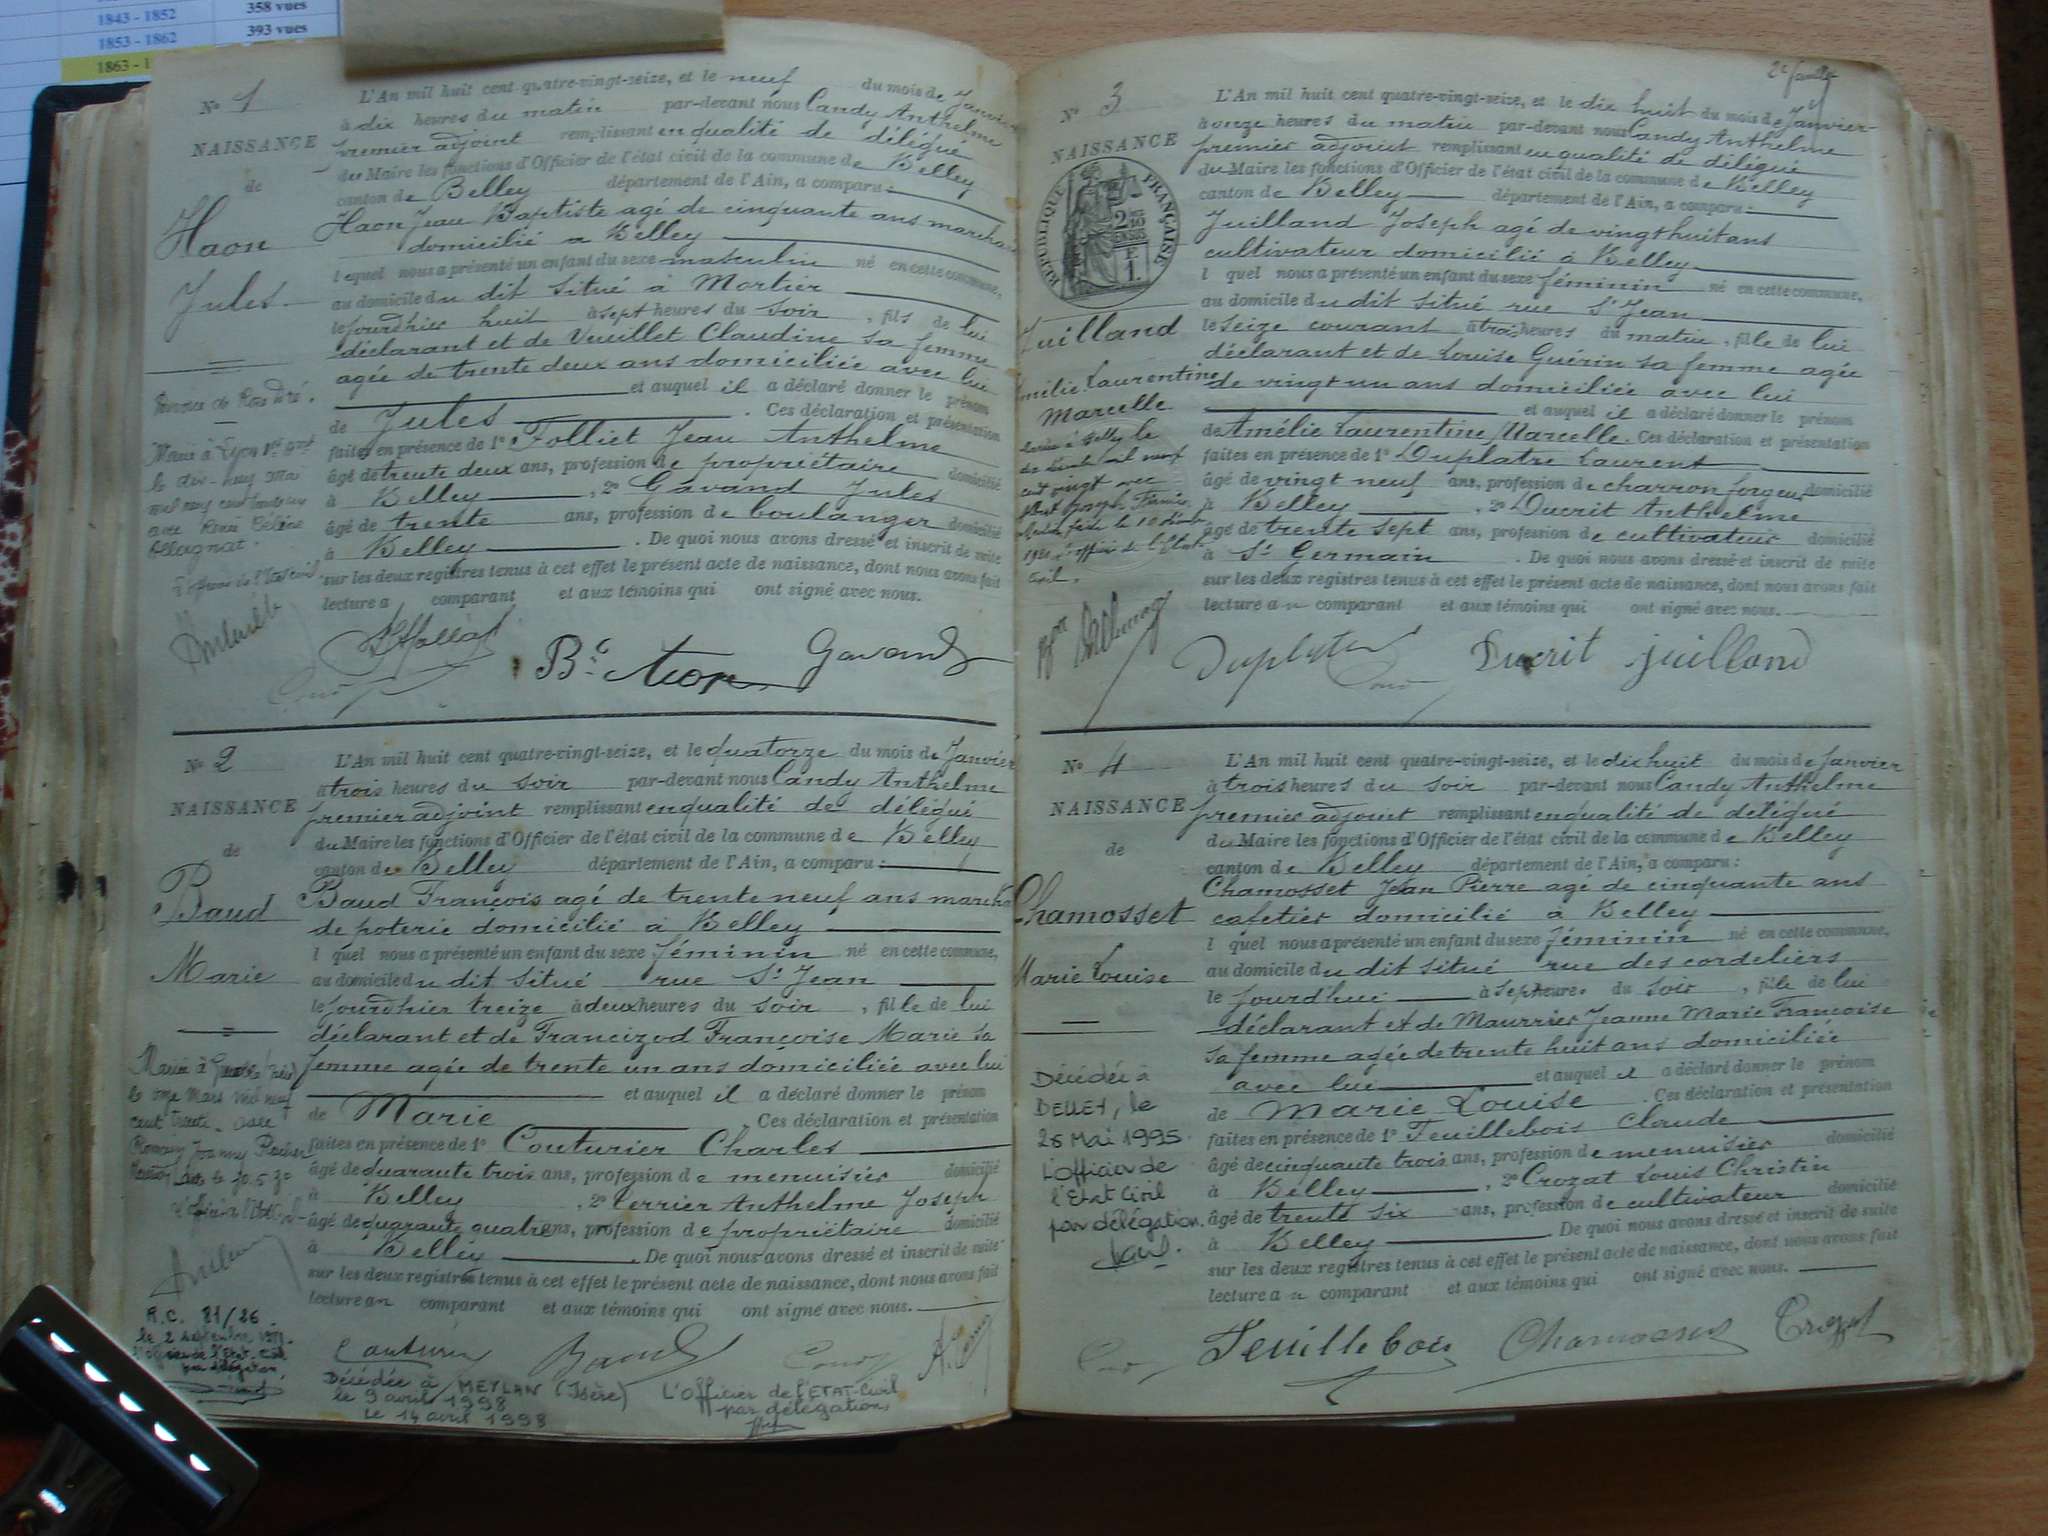 1843 - 1852 358 vues
1853 - 1862 393 vues
1863 - 1
No 1
NAISSANCE
de
Haon
Jules
L'An mil huit cent quatre-vingt-seize, et le neuf du mois de Janvier
à dix heures du matin par-devant nous Candy Anthelme
premier adjoint remplissant en qualité de délégué
du Maire les fonctions d'Officier de l'état civil de la commune de Belley
canton de Belley département de l'Ain, a comparu :
Haon Jean Baptiste agé de cinquante ans marchand
domicilié a Belley
lequel nous a présenté un enfant du sexe masculin né en cette commune,
au domicile du dit situé à Mortier
le jourdhier huit à sept heures du soir, fils de lui
déclarant et de Veuillet Claudine sa femme
agée de trente deux ans domiciliée avec lui
et auquel il a déclaré donner le prénom
de Jules . Ces déclaration et présentation
faites en présence de 1° Folliet Jean Anthelme
âgé de trente deux ans, profession de propriétaire domicilié
à Belley , 2° Gavand Jules
âgé de trente ans, profession de boulanger domicilié
à Belley . De quoi nous avons dressé et inscrit de suite
sur les deux registres tenus à cet effet le présent acte de naissance, dont nous avons fait
lecture a comparant et aux témoins qui ont signé avec nous.
Marié à Lyon
le dix-huit mai
avec
Ollagnat.
l'officier de l'Etat civil
Bte Haon Gavand
No 2
NAISSANCE
de
Baud
Marie
L'An mil huit cent quatre-vingt-seize, et le quatorze du mois de Janvier
à trois heures du soir par-devant nous Candy Anthelme
premier adjoint remplissant en qualité de délégué
du Maire les fonctions d'Officier de l'état civil de la commune de Belley
canton de Belley département de l'Ain, a comparu :
Baud François agé de trente neuf ans marchd
de poterie domicilié à Belley
l quel nous a présenté un enfant du sexe féminin né en cette commune,
au domicile du dit situé rue St Jean
le jourdhier treize à deux heures du soir, fille de lui
déclarant et de Francizod Françoise Marie sa
femme agée de trente un ans domiciliée avec lui
et auquel il a déclaré donner le prénom
de Marie . Ces déclaration et présentation
faites en présence de 1° Couturier Charles
âgé de quarante trois ans, profession de menuisier domicilié
à Belley , 2° Terrier Anthelme Joseph
âgé de quarante quatre ans, profession de propriétaire domicilié
à Belley . De quoi nous avons dressé et inscrit de suite
sur les deux registres tenus à cet effet le présent acte de naissance, dont nous avons fait
lecture au comparant et aux témoins qui ont signé avec nous.
Mariée à
le onze Mars mil neuf
cent trente avec
R.C. 81/26
le 2 septembre
l'officier de l'Etat-Civil
par délégation,
Couturier Baud
Décédée à MEYLAN (Isère)
le 9 avril 1998
Le 14 avril 1998
L'Officier de l'ETAT-Civil
par délégation,
2e feuillet
No 3
NAISSANCE
RÉPUBLIQUE FRANÇAISE
Juilland
Amélie Laurentine
Marcelle
L'An mil huit cent quatre-vingt-seize, et le dix huit du mois de Janvier
à onze heures du matin par-devant nous Candy Anthelme
premier adjoint remplissant en qualité de délégué
du Maire les fonctions d'Officier de l'état civil de la commune de Belley
canton de Belley département de l'Ain, a comparu :
Juilland Joseph agé de vingt huit ans
cultivateur domicilié à Belley
l quel nous a présenté un enfant du sexe féminin né en cette commune,
au domicile du dit situé rue St Jean
le seize courant à trois heures du matin, fille de lui
déclarant et de Louise Guérin sa femme agée
de vingt un ans domiciliée avec lui
et auquel il a déclaré donner le prénom
de Amélie Laurentine Marcelle. Ces déclaration et présentation
faites en présence de 1° Duplatre Laurent
âgé de vingt neuf ans, profession de charron forgeur domicilié
à Belley , 2° Ducrit Anthelme
âgé de trente sept ans, profession de cultivateur domicilié
à St Germain . De quoi nous avons dressé et inscrit de suite
sur les deux registres tenus à cet effet le présent acte de naissance, dont nous avons fait
lecture au comparant et aux témoins qui ont signé avec nous.
Mariée à Belley le
mil neuf
cent vingt avec
Joseph
le 10
1920 l'officier de l'Etat
Civil.
Ducrit Juilland
No 4
NAISSANCE
de
Chamosset
Marie Louise
L'An mil huit cent quatre-vingt-seize, et le dix huit du mois de Janvier
à trois heures du soir par-devant nous Candy Anthelme
premier adjoint remplissant en qualité de délégué
du Maire les fonctions d'Officier de l'état civil de la commune de Belley
canton de Belley département de l'Ain, a comparu :
Chamosset Jean Pierre agé de cinquante ans
cafetier domicilié à Belley
l quel nous a présenté un enfant du sexe féminin né en cette commune,
au domicile du dit situé rue des cordeliers
le jourdhui à sept heures du soir, fille de lui
déclarant et de Maurrier Jeanne Marie Françoise
sa femme agée de trente huit ans domiciliée
avec lui et auquel il a déclaré donner le prénom
de Marie Louise . Ces déclaration et présentation
faites en présence de 1° Feuillebois Claude
âgé de cinquante trois ans, profession de menuisier domicilié
à Belley , 2° Crozat Louis Christin
âgé de trente six ans, profession de cultivateur domicilié
à Belley . De quoi nous avons dressé et inscrit de suite
sur les deux registres tenus à cet effet le présent acte de naissance, dont nous avons fait
lecture au comparant et aux témoins qui ont signé avec nous.
Décédée à
BELLEY, le
28 Mai 1995
L'officier de
l'Etat Civil
par délégation.
Feuillebois Chamosset Crozat